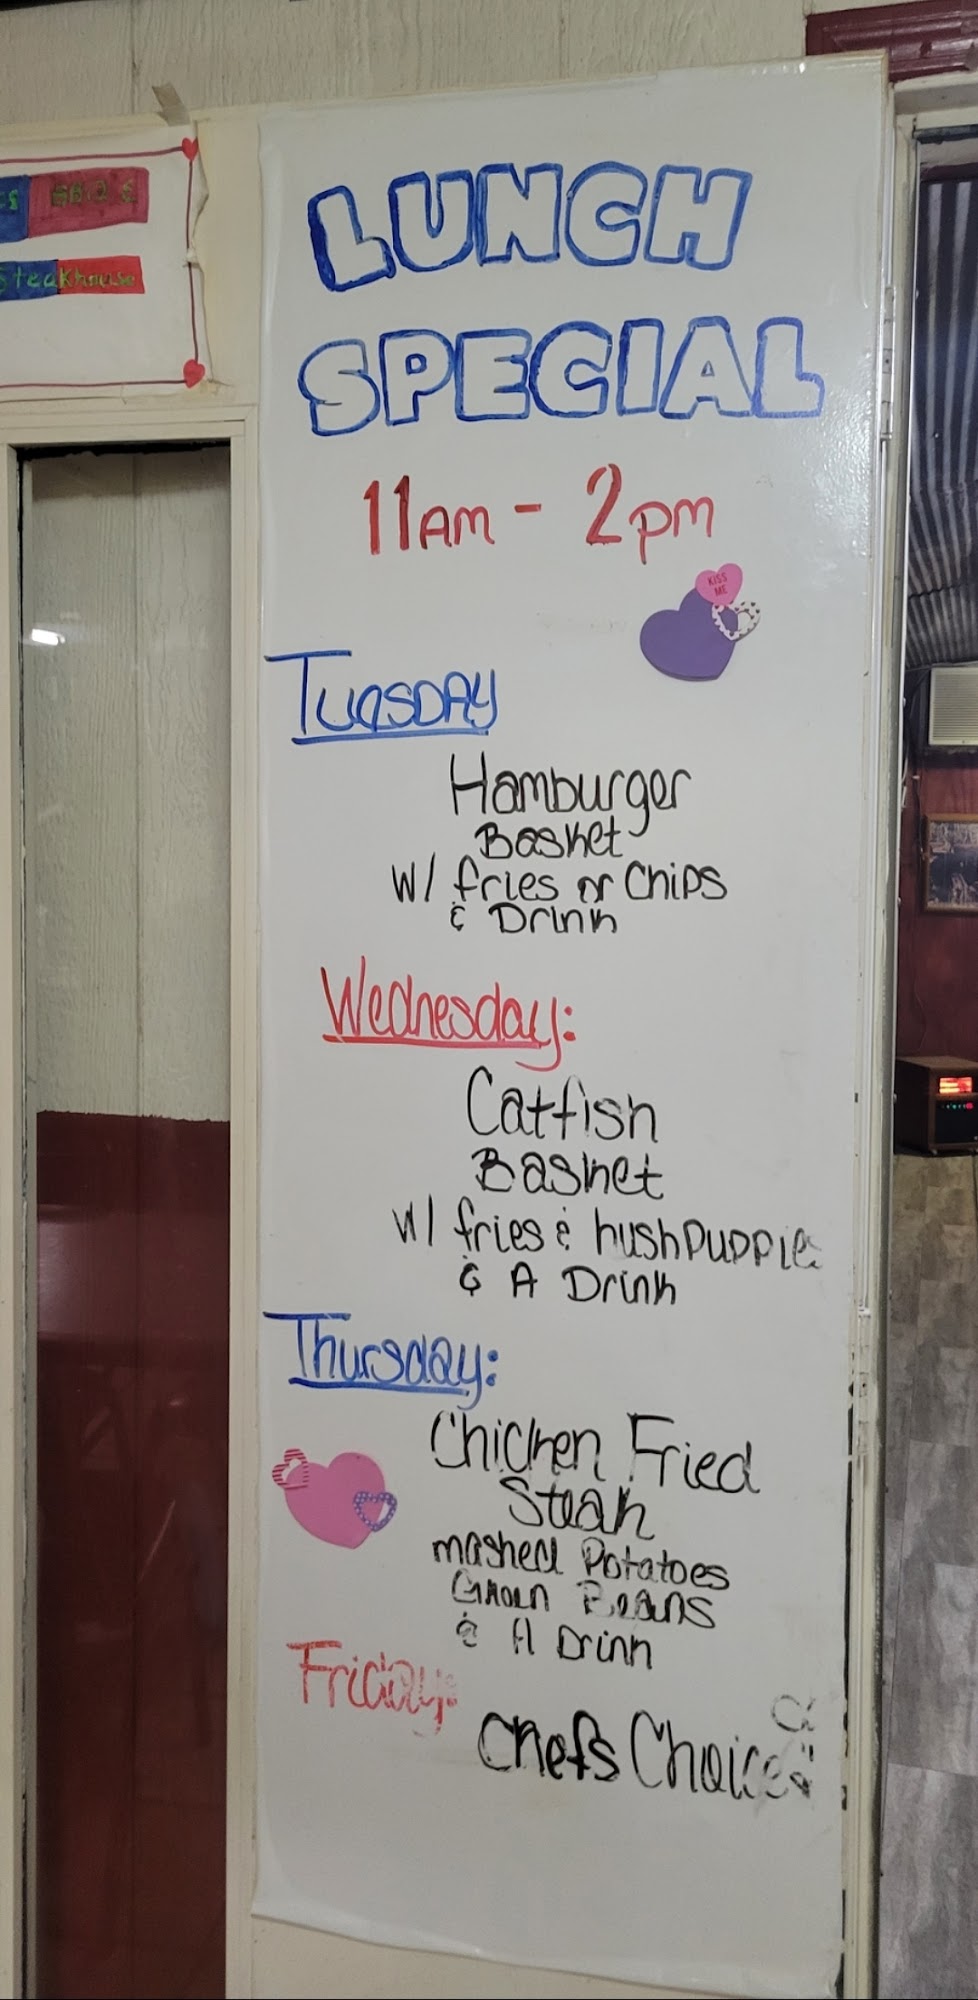 BBQ &
Steakhouse
LUNCH
SPECIAL
11AM - 2pm
KISS
ME
TUESDAY
Hamburger
Basket
W/ fries or Chips
& Drink
Wednesday:
Catfish
Basket
W/ fries & hushpuppies
& A Drink
Thursday:
Chicken Fried
Steak
mashed Potatoes
Green Beans
& A Drink
Friday:
Chefs Choice